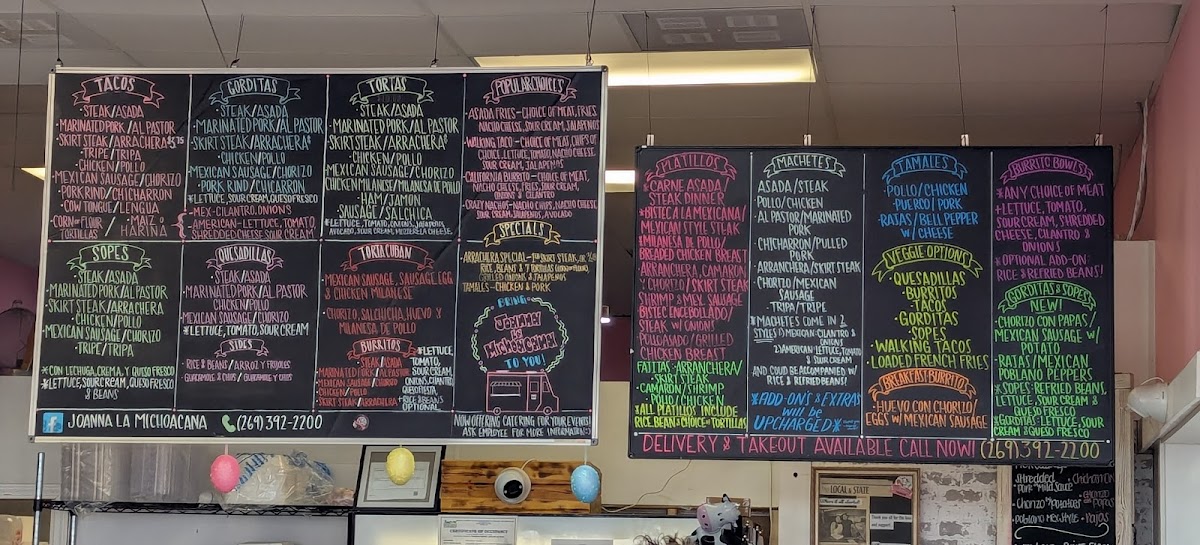 TACOS
• STEAK/ASADA
• MARINATED PORK/AL PASTOR
• SKIRT STEAK/ARRACHERA
• TRIPE/TRIPA
CHICKEN/POLLO
MEXICAN SAUSAGE/CHORIZO
PORKRIND/CHICHARRON
COW TONGUE/LENGUA
CORN OR FLOUR TORTILLAS
• MAIZ O HARINA
GORDITAS
• STEAK/ASADA
• MARINATED PORK/AL PASTOR
• SKIRT STEAK/ARRACHERA
• CHICKEN/POLLO
MEXICAN SAUSAGE/CHORIZO
• PORK RIND/CHICARRON
*LETTUCE, SOUR CREAM, QUESO FRESCO
- MEX-CILANTRO, ONIONS
- AMERICAN-LETTUCE, TOMATO,
SHREDDED CHEESE, SOUR CREAM
TORTAS
STEAK/ASADA
• MARINATED PORK/AL PASTOR
SKIRT STEAK/ARRACHERA
CHICKEN/POLLO
MEXICAN SAUSAGE/CHORIZO
CHICKEN MILANESE/MILANESA DE POLLO
HAM/JAMON
SAUSAGE/SALCHICA
*LETTUCE, TOMATO, ONIONS, JALAPENOS,
AVOCADO, SOUR CREAM, MOZZERELLA CHEESE
POPULAR CHOICES
• ASADA FRIES - CHOICE OF MEAT, FRIES
NACHO CHEESE, SOUR CREAM, JALAPENOS
WALKING TACO - CHOICE OF MEAT, CHIPS OF
CHOICE, LETTUCE, TOMATO, NACHO CHEESE,
SOUR CREAM, JALAPENOS
CALIFORNIA BURRITO - CHOICE OF MEAT,
NACHO CHEESE, FRIES, SOUR CREAM,
ONIONS & CILANTRO
CRAZY NACHOS - NACHO CHIPS, NACHO CHEESE
SOUR CREAM, JALAPENOS, AVOCADO
SPECIALS
• ARRACHERA SPECIAL - 1LB SKIRT STEAK,
RICE, BEANS & 7 TORTILLAS
GRILLED ONIONS & JALAPENOS
TAMALES - CHICKEN & PORK
BRING
JOANNA
LA
MICHOACANA
TO YOU!
NOW OFFERING CATERING FOR YOUR EVENTS!
ASK EMPLOYEE FOR MORE INFORMATION
SOPES
• STEAK/ASADA
MARINATED PORK/AL PASTOR
SKIRT STEAK/ARRACHERA
• CHICKEN/POLLO
MEXICAN SAUSAGE/CHORIZO
• TRIPE/TRIPA
*CON LECHUGA, CREMA, Y QUESO FRESCO
*LETTUCE, SOUR CREAM, QUESO FRESCO
& BEANS
QUESADILLAS
• STEAK/ASADA
MARINATED PORK/AL PASTOR
CHICKEN/POLLO
MEXICAN SAUSAGE/CHORIZO
*LETTUCE, TOMATO, SOUR CREAM
SIDES
• RICE & BEANS/ARROZ Y FRIJOLES
GUACAMOLE & CHIPS/GUACAMOLE Y CHIPS
TORTA CUBAN
• MEXICAN SAUSAGE, SAUSAGE, EGG
& CHICKEN MILANESE
• CHORIZO, SALCHICHA, HUEVO Y
MILANESA DE POLLO
BURRITOS
• STEAK/ASADA
MARINATED PORK/AL PASTOR
MEXICAN SAUSAGE/CHORIZO
CHICKEN/POLLO
• SKIRT STEAK/ARRACHERA
*LETTUCE,
TOMATO,
SOUR CREAM,
ONIONS, CILANTRO
+ RICE & BEANS
OPTIONAL
JOANNA LA MICHOACANA (269)392-2200
PLATILLOS
*CARNE ASADA/
STEAK DINNER
*BISTEC A LA MEXICANA/
MEXICAN STYLE STEAK
*MILANESA DE POLLO/
BREADED CHICKEN BREAST
ARRANCHERA, CAMARON,
Y CHORIZO/SKIRT STEAK
SHRIMP & MEX SAUSAGE
BISTEC ENCEBOLLADO/
STEAK W/ONIONS
POLLO ASADO/GRILLED
CHICKEN BREAST
FAJITAS: ARRANCHERA/
SKIRT STEAK
• CAMARON/SHRIMP
• POLLO/CHICKEN
*ALL PLATILLOS INCLUDE
RICE, BEANS & CHOICE OF TORTILLAS
MACHETES
ASADA/STEAK
POLLO/CHICKEN
AL PASTOR/MARINATED
PORK
• CHICHARRON/PULLED
PORK
• ARRANCHERA/SKIRT STEAK
• CHORITO/MEXICAN
SAUSAGE
• TRIPA/TRIPE
*MACHETES COME IN 2
STYLES: 1) MEXICAN: CILANTRO &
ONIONS
2) AMERICAN: LETTUCE, TOMATO
& SOUR CREAM
AND COULD BE ACCOMPANIED W/
RICE & REFRIED BEANS!
*ADD-ON'S & EXTRAS
will be
UPCHARGED*
TAMALES
• POLLO/CHICKEN
PUERCO/PORK
RAJAS/BELL PEPPER
W/CHEESE
VEGGIE OPTIONS
• QUESADILLAS
• BURRITOS
• TACOS
• GORDITAS
• SOPES
• WALKING TACOS
• LOADED FRENCH FRIES
BREAKFAST BURRITO
• HUEVO CON CHORIZO/
EGGS W/ MEXICAN SAUSAGE
BURRITO BOWLS
*ANY CHOICE OF MEAT
+LETTUCE, TOMATO,
SOUR CREAM, SHREDDED
CHEESE, CILANTRO &
ONIONS
*OPTIONAL ADD-ON:
RICE & REFRIED BEANS!
GORDITAS & SOPES
NEW!
• CHORIZO CON PAPAS/
MEXICAN SAUSAGE W/
POTATO
• RAJAS/MEXICAN
POBLANO PEPPERS
*SOPES: REFRIED BEANS,
LETTUCE, SOUR CREAM &
QUESO FRESCO
*GORDITAS: LETTUCE, SOUR
CREAM & QUESO FRESCO
DELIVERY & TAKEOUT AVAILABLE CALL NOW! (269)-392-2200
LOCAL & STATE
CERTIFICATE OF OCCUPANCY
Shredded
Pork *Mild Sauce
• Chorizo *Potatoes
poblano Mex. Style
• Rajas